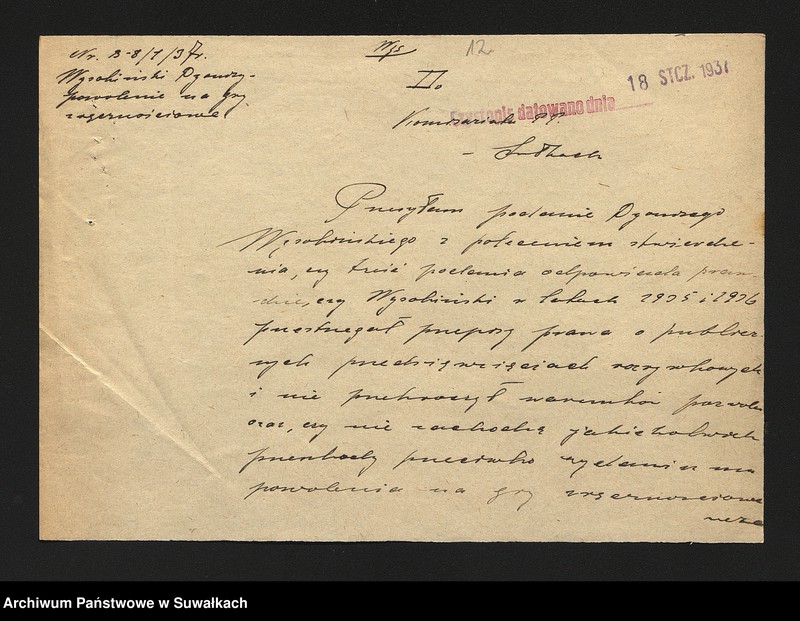 Nr. B-8/1/37r.
Wysobiński Dyonizy-
pozwolenie na gry
zręcznościowe
Wys
12.
II.
18 STCZ. 1937
datowano dnia
Komisariatu P.P.
Przesyłam podanie Dyonizego
Wysobińskiego z poleceniem stwierdze-
nia, czy treść podania odpowiada praw-
dzie, czy Wysobiński w latach 1935 i 1936
przestrzegał przepisy prawa o publicz-
nych przedsięwzięciach rozrywkowych
i nie przekroczył warunków pozwole
oraz, czy nie zachodzą jakiekolwiek
przeszkody przeciwko wydaniu mu
pozwolenia na gry zręcznościowe
Archiwum Państwowe w Suwałkach